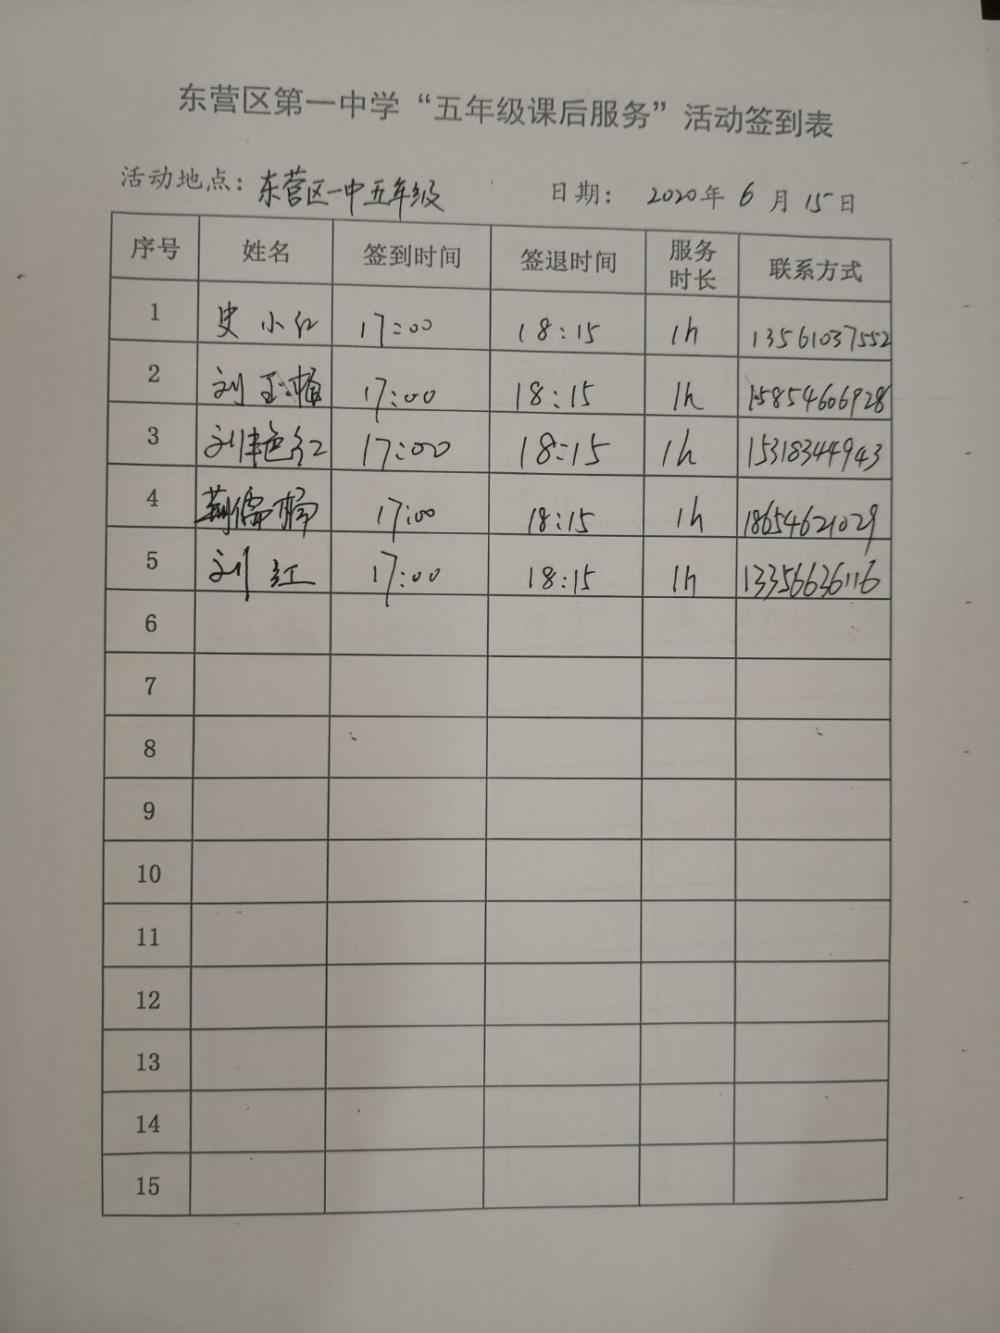 东营区第一中学“五年级课后服务”活动签到表
活动地点：东营区一中五年级 日期： 2020年 6 月 15日
序号 姓名 签到时间 签退时间 服务时长 联系方式
1 史小红 17:00 18:15 1h 13561037552
2 刘玉梅 17:00 18:15 1h 15854606928
3 刘艳红 17:00 18:15 1h 15318344943
4 17:00 18:15 1h 18654621029
5 刘红 17:00 18:15 1h 13356636116
6
7
8
9
10
11
12
13
14
15